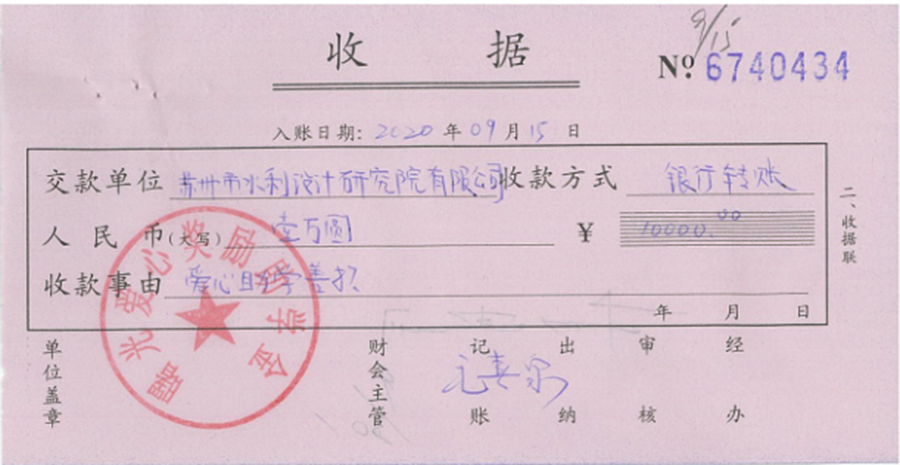 9/15
收 据
№ 6740434
入账日期: 2020 年 09 月 15 日
交款单位 苏州市水利设计研究院有限公司 收款方式 银行转账
人民币(大写) 壹万圆 ¥ 10000.00
收款事由 爱心助学善款
年 月 日
二、收据联
单位盖章 财会主管 记账 出纳 审核 经办
光爱心奖励助学金